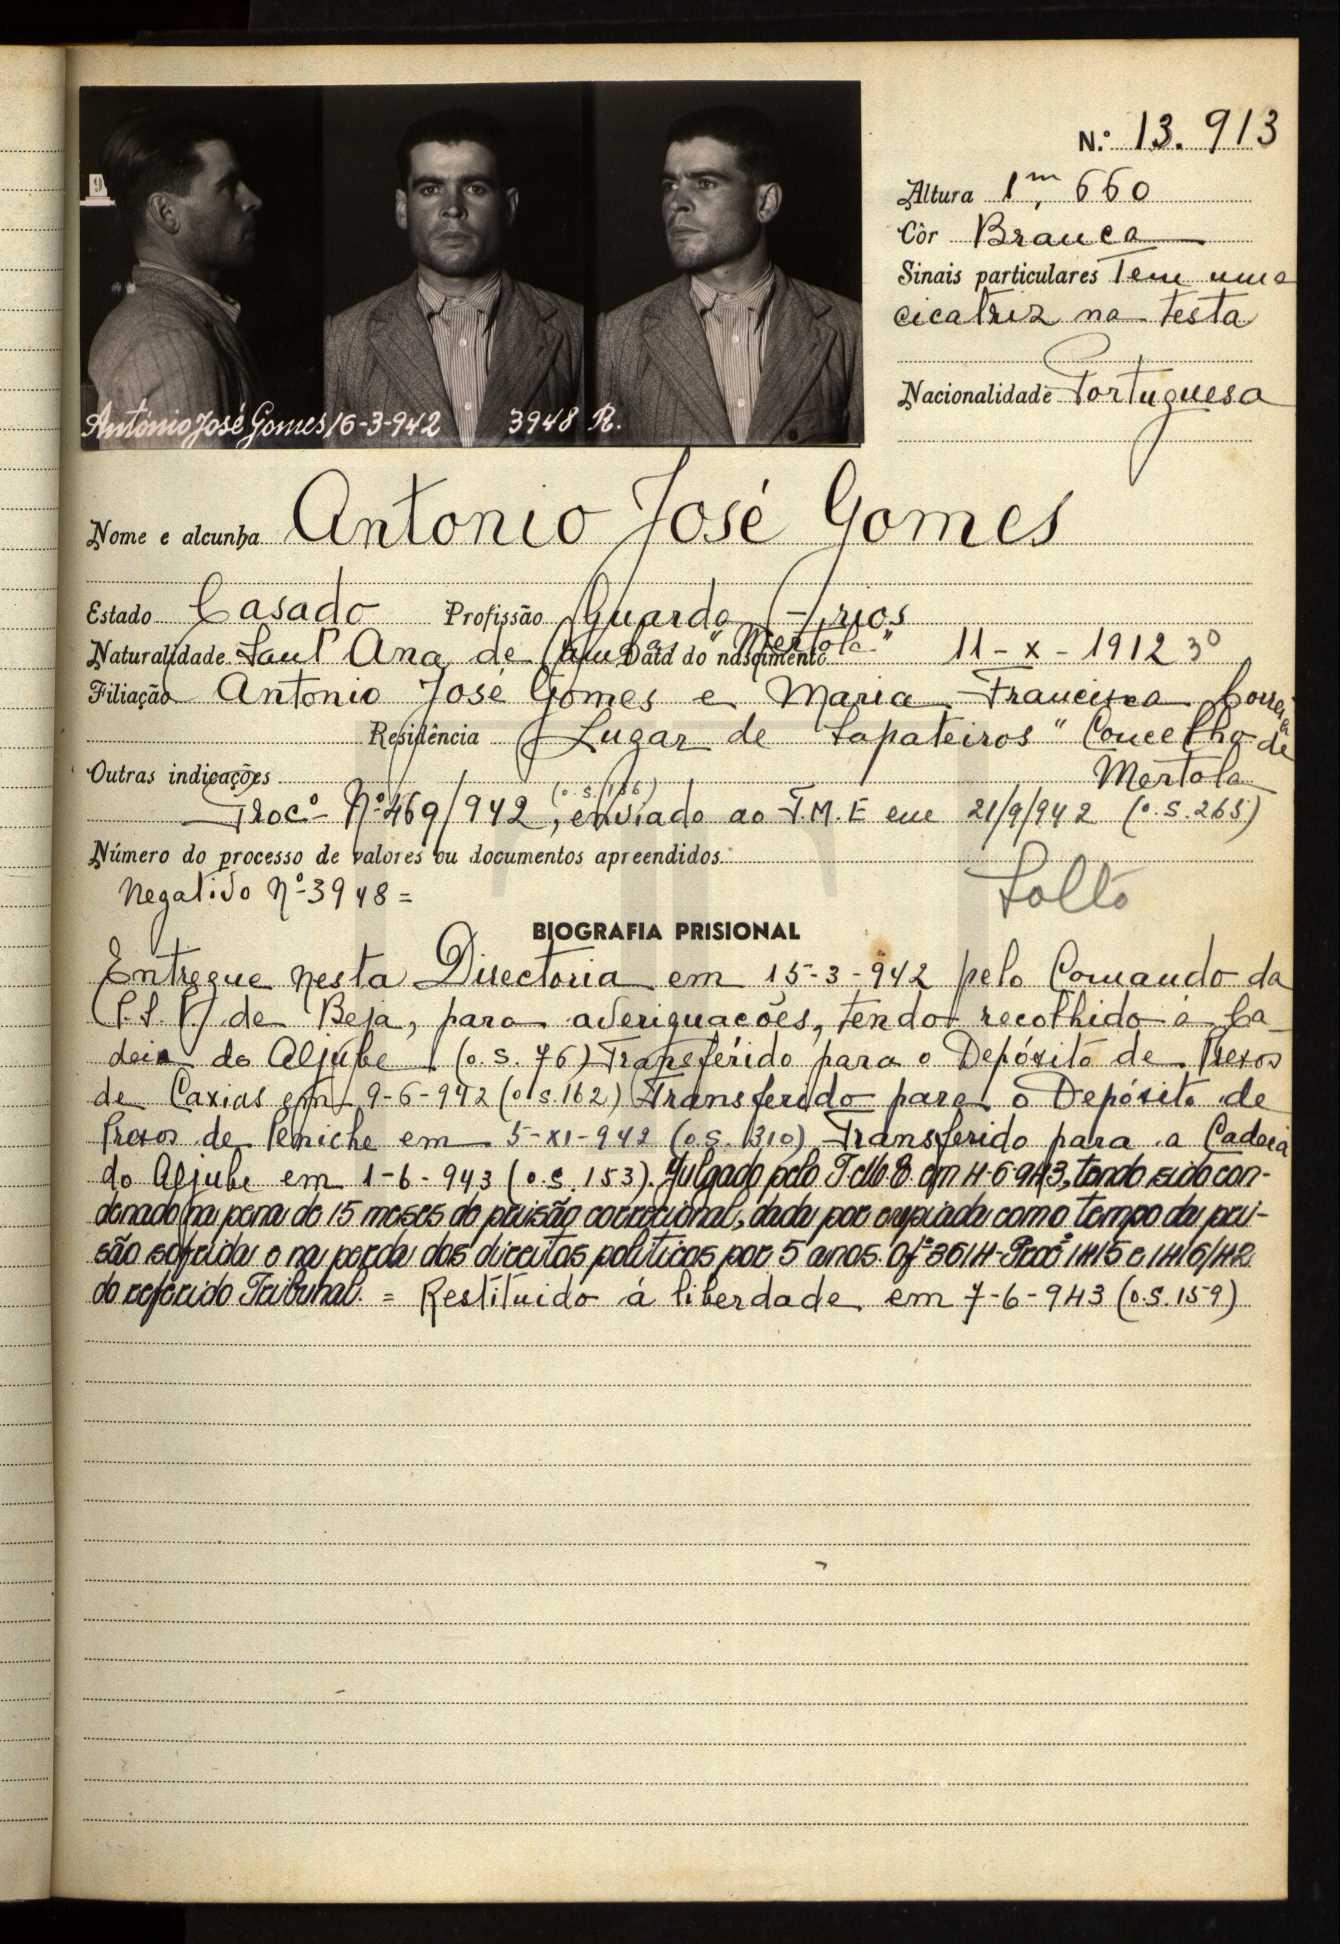 N.º 13.913
Altura 1m,660
Côr Branca
Sinais particulares Tem uma
cicatriz na testa
Nacionalidade Portuguesa
António José Gomes 16-3-942 3948 R.
Nome e alcunha Antonio José Gomes
Estado Casado Profissão Guarda Frios
Naturalidade Sant' Ana de Cambas "Mertola" Data do nascimento 11-X-1912 30
Filiação Antonio José Gomes e Maria Francisca Correia
Residência Lugar de "Sapateiros" Concelho de
Outras indicações Mertola
Procº Nº 469/942 (o.s. 136), enviado ao T.M.E em 21/9/942 (o.s.265)
Número do processo de valores ou documentos apreendidos
Negativo Nº 3948= Solto
BIOGRAFIA PRISIONAL
Entregue nesta Directoria em 15-3-942 pelo Comando da
P.S.P. de Beja, para averiguações, tendo recolhido á Ca-
deia do Aljube (o.s. 76) Transferido para o Depósito de Presos
de Caxias em 9-6-942 (o.s.162) Transferido para o Depósito de
Presos de Peniche em 5-XI-942 (o.s. 310) Transferido para a Cadeia
do Aljube em 1-6-943 (o.s. 153). Julgado pelo T.M.E. em 4-6-943, tendo sido con-
denado na pena de 15 meses de prisão correcional, dada por expiada com o tempo da pri-
são sofrida e na perda dos direitos politicos por 5 anos. Ofº 3614-Procº 1415 e 1416/42
do referido Tribunal. = Restituido á liberdade em 7-6-943 (o.s.159)